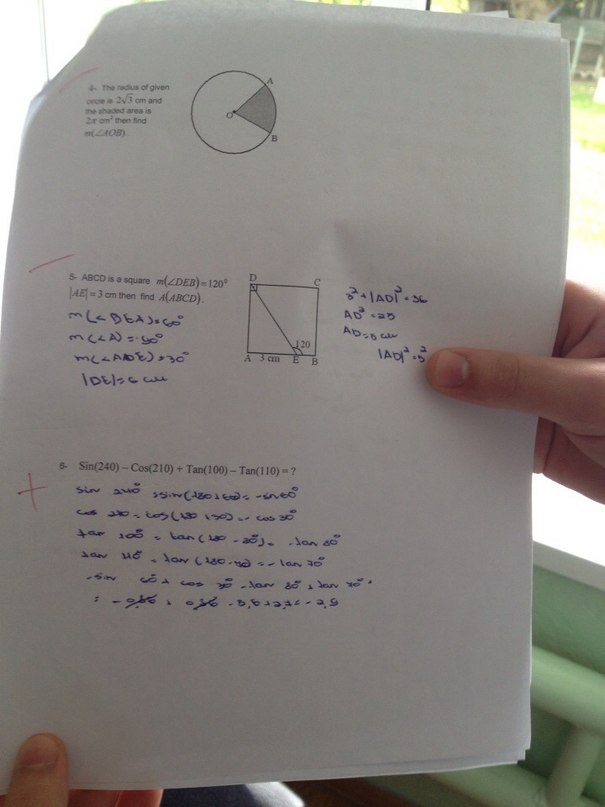 4- The radius of given
circle is 2√3 cm and
the shaded area is
2π cm² then find
m(∠AOB).
A
O
B
5- ABCD is a square m(∠DEB)=120°
|AE|=3 cm then find A(ABCD).
D
C
120
A 3 cm E B
m(∠DEA)=60°
m(∠A)=90°
m(∠ADE)=30°
|DE|=6 cm
3²+|AD|²=36
AD²=25
AD=5 cm
|AD|²=5²
6- Sin(240) – Cos(210) + Tan(100) – Tan(110) = ?
sin 240° = sin(180+60)= -sin60°
cos 210 = cos(180+30)= -cos30°
tan 100° = tan(180-80°)= -tan 80°
tan 110° = tan(180-70)= -tan 70°
-sin 60 + cos 30° - tan 80° + tan 70° =
= -0,86 + 0,86 - 5,6+2,7= -2,9